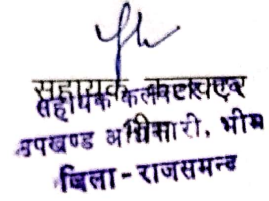 सहायक कलक्टर
सहायक कलक्टर एवं
उपखण्ड अधिकारी, भीम
जिला - राजसमन्द